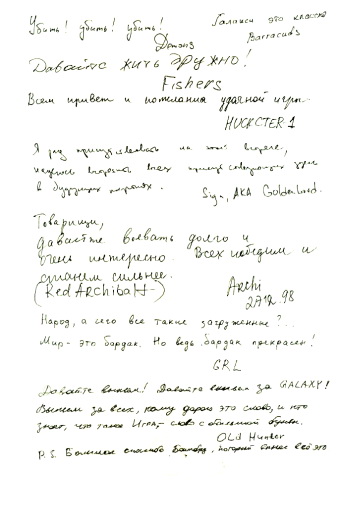 Убить! убить! убить!
Demons
Галакси это классно
Barracuda
Давайте жить дружно!
Fishers
Всем привет и пожелания удачной игры.
HUCKSTER1
Я рад присутствовать на этой встрече,
всех присутствующих здесь
в будущих
Sign, AKA Golden Lord.
Товарищи,
давайте воевать долго и
очень интересно. Всех победим и
станем сильнее.
(Red Archibald)
Archi
27.12.98
Народ, а чего все такие загруженные?..
Мир - это бардак. Но ведь бардак прекрасен!
GRL
Давайте выпьем! Давайте выпьем за GALAXY!
Выпьем за всех, кому дорого это слово, и кто
знает, что такое Игра, - слово с большой буквы.
Old Hunter
P.S. Большое спасибо который всё это